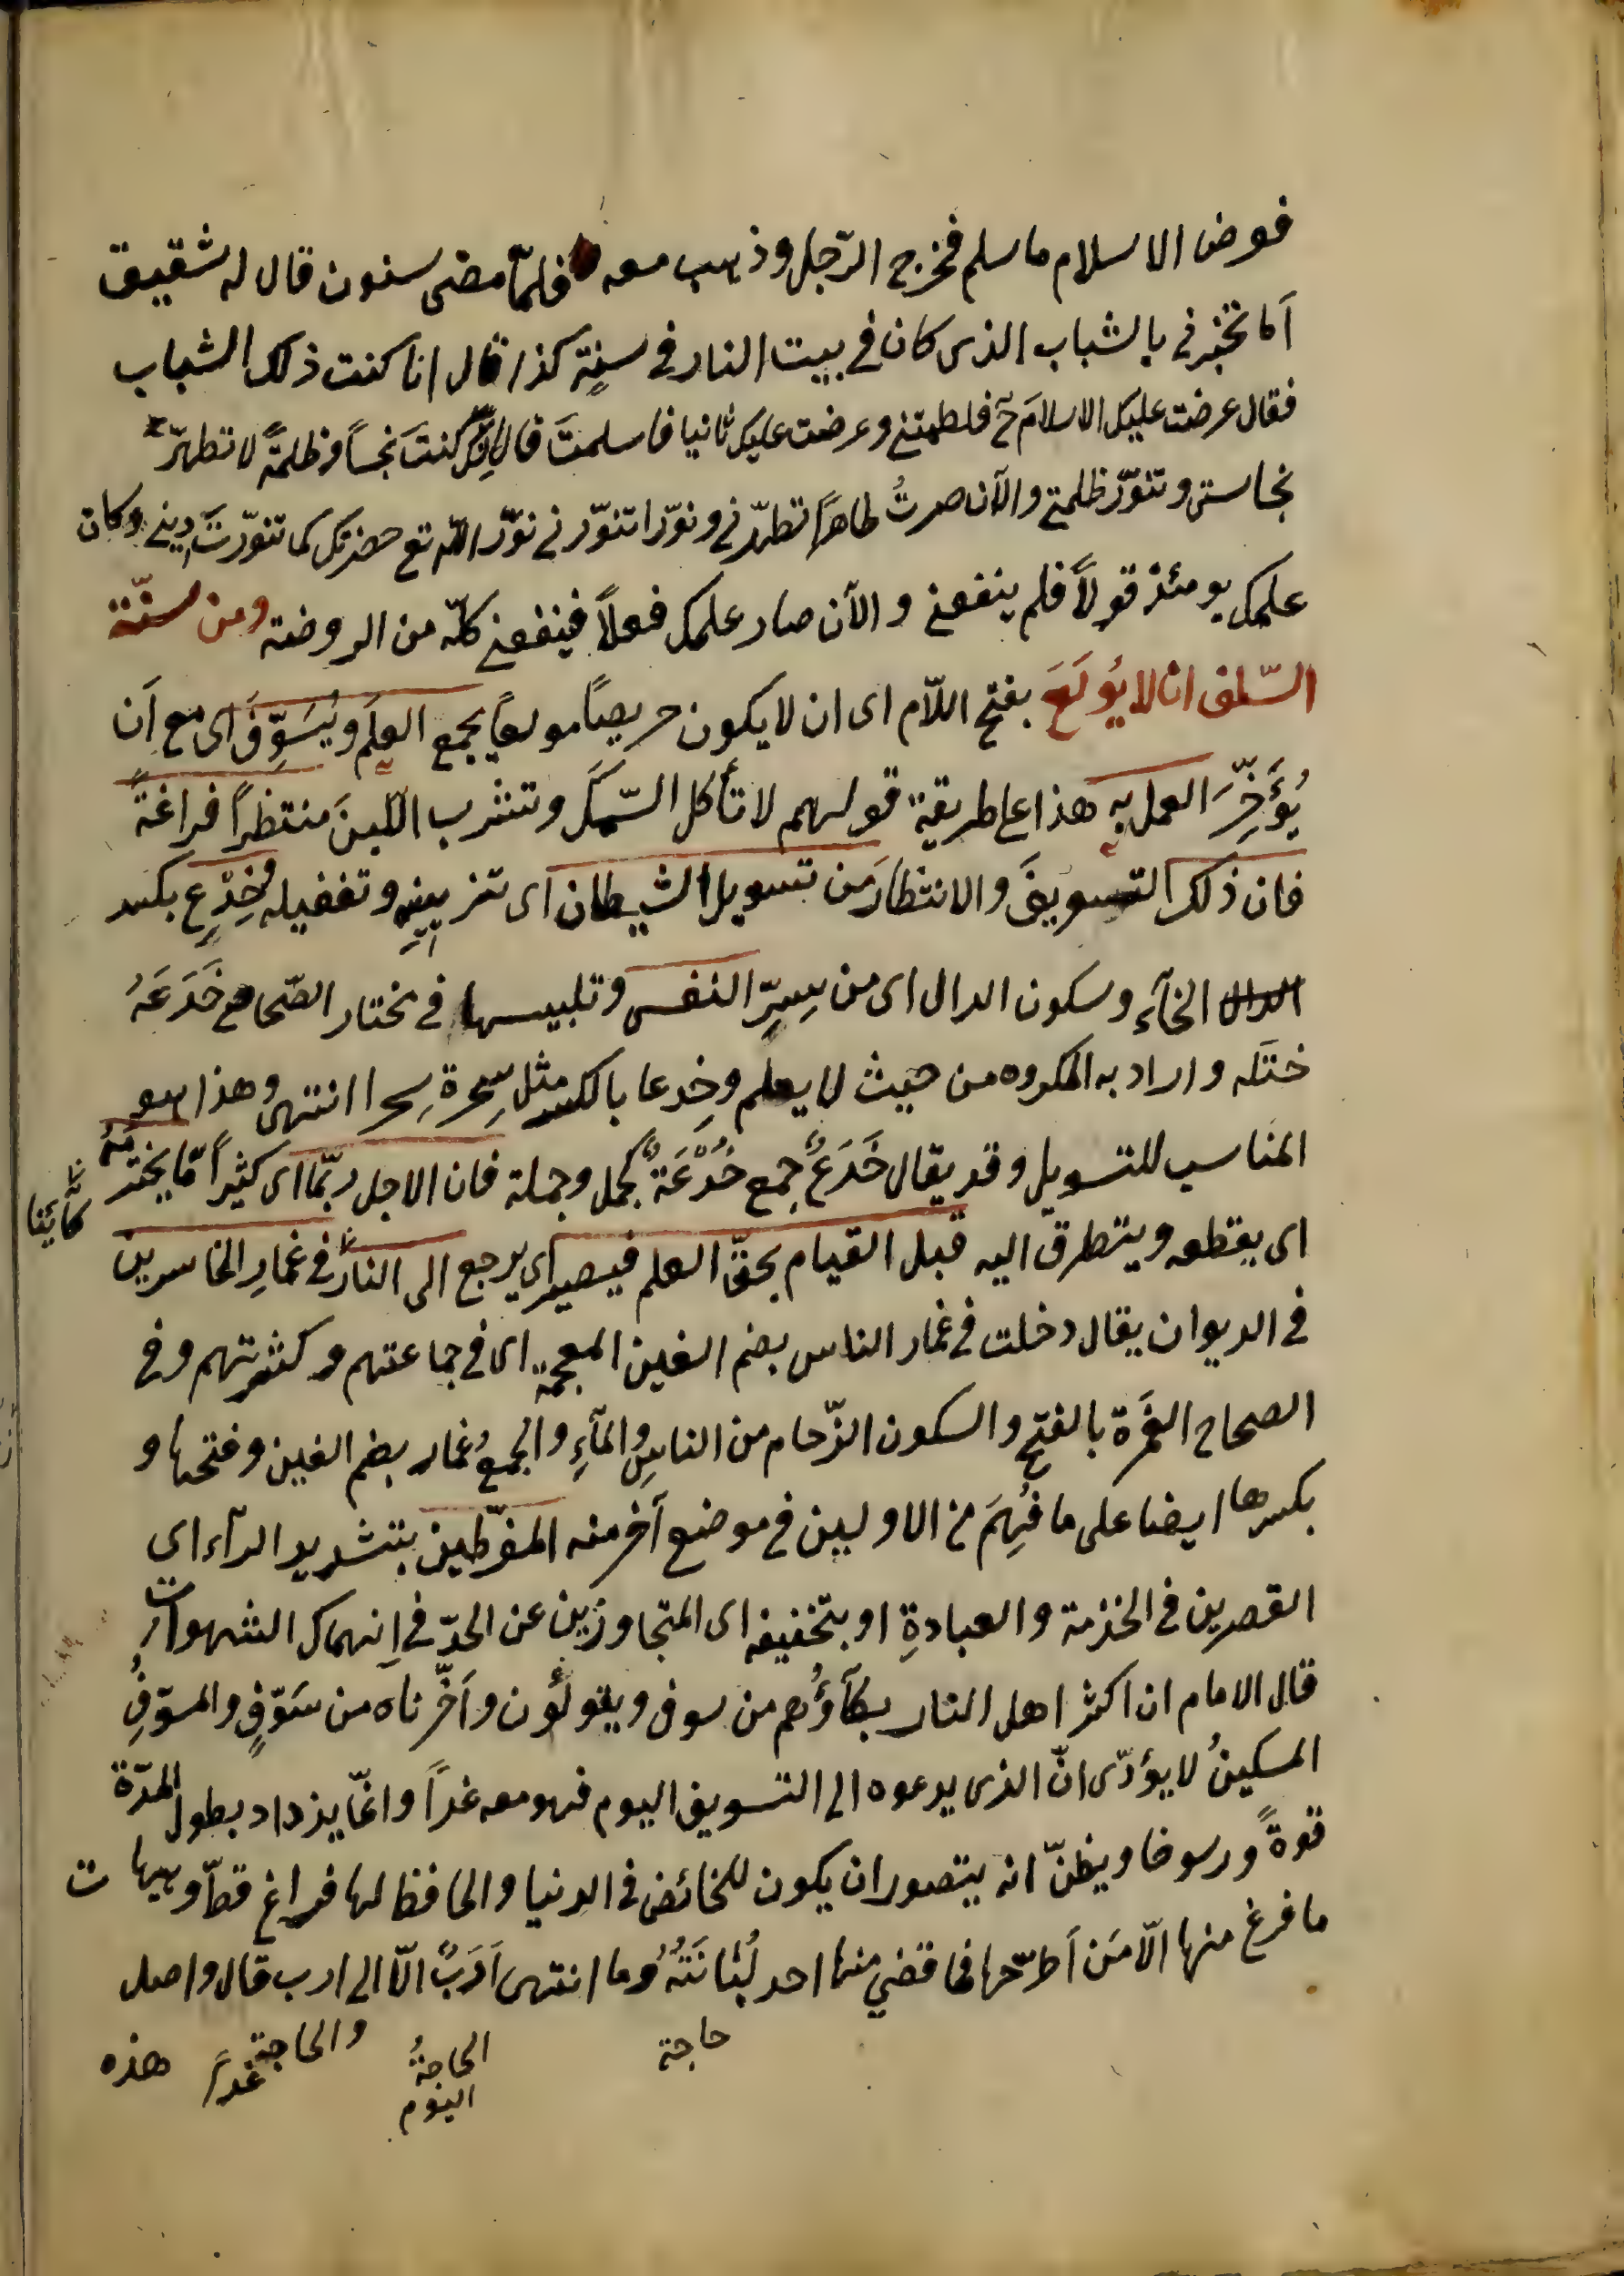 فوض الاسلام ما سلم فخرج الرّجل وذهب معه فلمّا مضى سنون قال له شقيق
اَما تخبرنى بالشباب الذى كان فى بيت النار فى سنةٍ كذا قال انا كنت ذلك الشباب
فقال عرضت عليك الاسلامَ ح فلطمتنى وعرضت عليك ثانيا فاسلمتَ قال لانك كنتَ نجساً وظلمةً لا تطهّر
نجاستى وتنوّر ظلمتى والآن صرتُ طاهراً تطهّرنى ونوّرا تنوّرنى نوّر اللّه تع حضرتك كما تنوّرتَ دينى وكان
علمك يومئذ قولاً فلم ينفعنى والآن صار علمك فعلاً فينفعنى كلّه من الروضة ومن سنّة
السّلف ان لا يُولَعَ بفتح اللّام اى ان لا يكون حريصاً مولعاً بجمع العلم ويُسَوِّفَ اى مع اَن
يُؤَخِّرَ العمل به هذا على طريقة قولهم لا تأكل السّمكَ وتشرب اللّبنَ منتظراً فراغةً
فان ذلك التسويفَ والانتظارَ من تسويل الشيطان اى تزيينِهِ وتغفيله وخِدْعِ بكسر
الخآء وسكون الدال اى من سِرِّ النفس وتلبيسها فى مختار الصّحاح خَدَعَهُ
ختَله واراد به المكروه من حيث لا يعلم وخِدعا بالكسر مثل سِحرة سِحرا انتهى وهذا هو
المناسب للتسويل وقد يقال خَدَعٌ جمع خُدْعَةٌ كجمل وجملة فان الاجل ربّما اى كثيراً مّا يخترمُهُ
اى يقطعه ويتطرق اليه قبل القيام بحقّ العلم فيصير اى يرجع الى النار كائنا فى غمارِ الخاسرين
فى الديوان يقال دخلت فى غمار الناس بضم الغين المعجمة اى فى جماعتهم وكثرتهم وفى
الصحاح الغَمرَة بالفتح والسكون الزّحام من الناسِ والمآءِ والجمعُ غمار بضم الغين وفتحها و
بكسرها ايضا على ما فُهِمَ من الاوليين فى موضع آخر منه المفرّطين بتشديد الرآء اى
القصرين فى الخدمة والعبادةِ او بتخفيفه اى المتجاوزين عن الحدّ فى اِنهماك الشهوات
قال الامام ان اكثر اهل النار بكآؤُهم من سوف ويقولون واَخّرناه من سَوّفٍ والمسوّفُ
المسكينُ لا يؤدّى انّ الذى يدعوه الى التسويف اليوم فهو معه غداً وانّما يزداد بطول المدّة
قوةً ورسوخا ويظنّ انه يتصور ان يكون للخائض فى الدنيا والحافظ لها فراغ قطّ وهيهات
ما فرغ منها الّا مَن اَطرحها فما قضي منها احد لُبانَتَهُ وما انتهى اَرَبٌ الّا الى ارب قال واصل
حاجة
الحاجةُ اليوم
والحاجة غداً
هذه